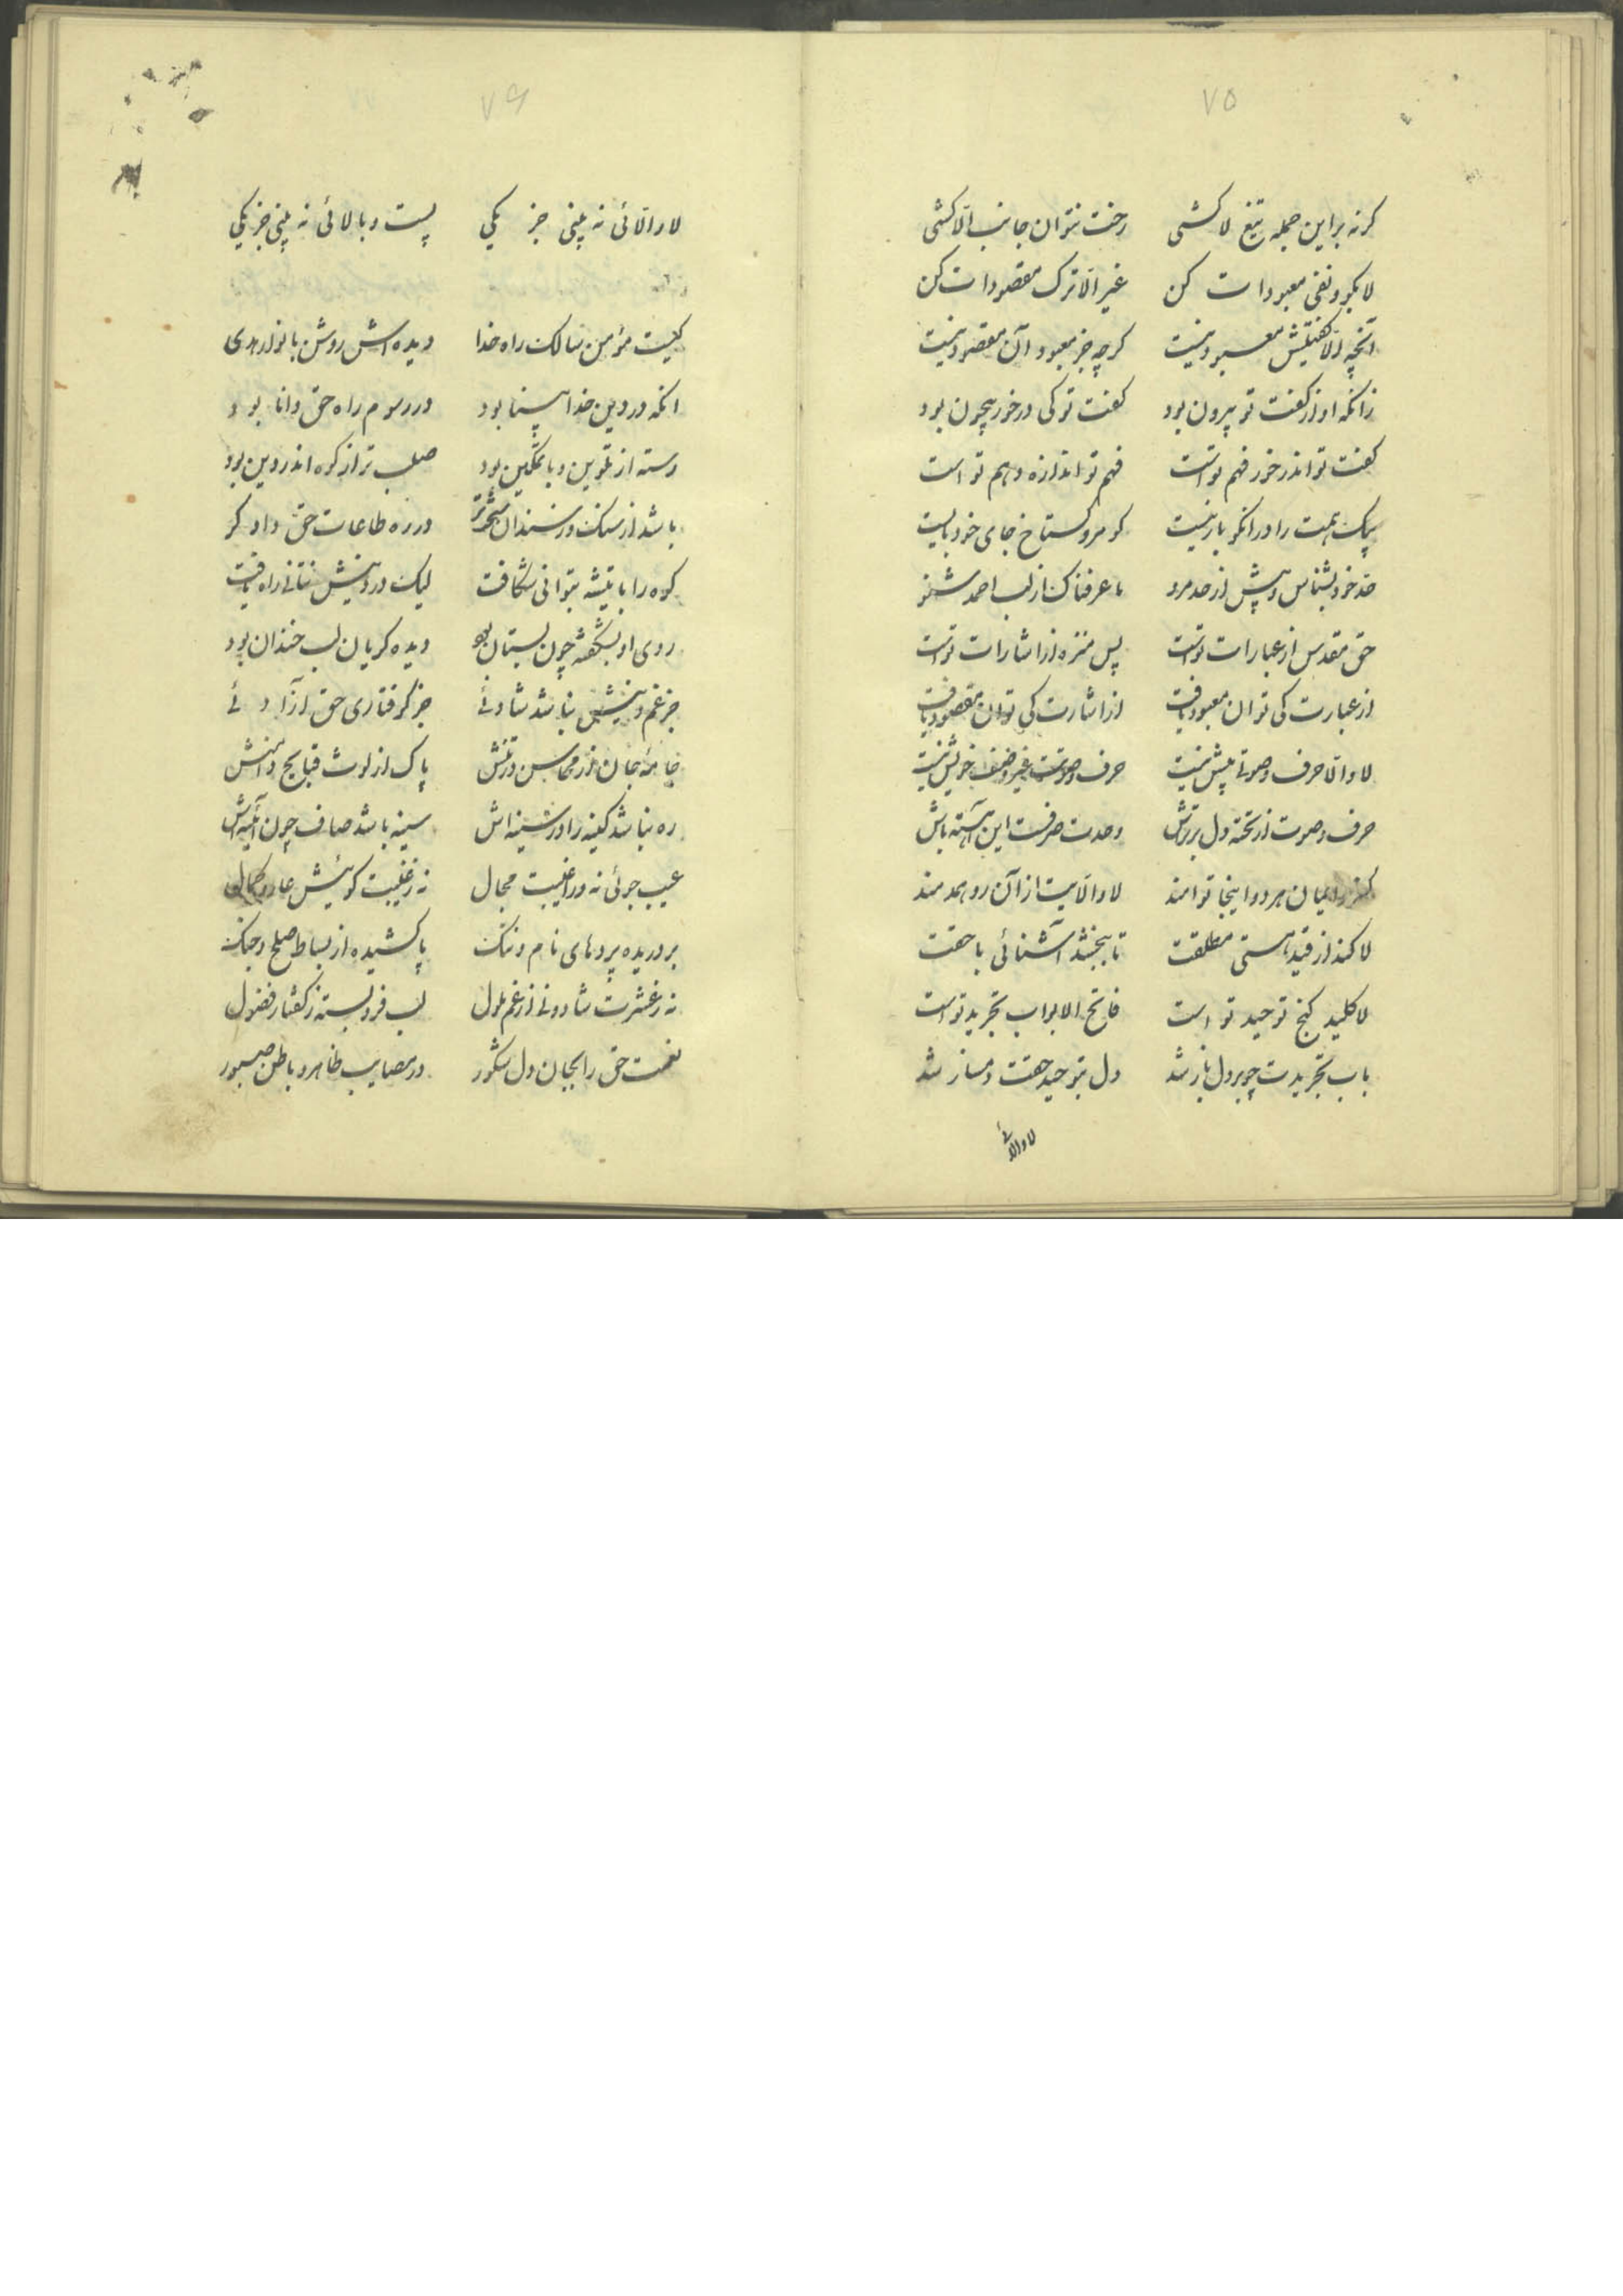 ۷۵
کرنه براین جمله تیغ لا کشی رخت نتوان جانب الّا کشی
لا بکو و نفی معبودات کن غیر الّا ترک مقصودات کن
آنچه الّا کفتیش معبود نیست کرچه جز معبود آن مقصود نیست
زانکه او از کفت تو بیرون بود کفت تو کی درخور بیچون بود
کفت تو اندر خور فهم تو است فهم تو اندازه وهم تو است
پیک همت را در انکو بار نیست کو مرو کستاخ جای خود بایست
حد خود بشناس و پیش از حد مرو ما عرفناک از لب احمد شنو
حق مقدس از عبارات تو است پس منزه از اشارات تو است
از عبارت کی توان معبود یافت از اشارت کی توان مقصود یافت
لا و الّا حرف و صوتی بیش نیست حرف و صوتت غیر وصف خویش نیست
حرف و صوت از تخته دل بر تراش وحدت صرفست این آهسته باش
کفر و ایمان هر دو اینجا توامند لا و الّایت از آن رو همدمند
لا کند از قید هستی مطلقت تا ببخشد آشنائی با حقت
لا کلید کنج توحید تو است فاتح الابواب تجرید تو است
باب تجریدت چو بر دل باز شد دل بتوحید حقت دمساز شد
لا و الّائی
۷۶
لا و الّائی نه بینی جز یکی پست و بالائی نه بینی جز یکی
کیست مؤمن سالک راه خدا دیده اش روشن بانوار هدی
انکه در دین خدا بینا بود در رسوم راه حق دانا بود
رسته از تلوین و با تمکین بود صلب تر از کوه اندر دین بود
باشد از سنک و ز سندان سخت تر در ره طاعات حق دادکر
کوه را با تیشه بتوانی شکافت لیک در دینش نتانی راه یافت
روی او بشکفته چون بستان بود دیده کریان لب خندان بود
جز غم دینش نباشد شادئی جز کرفتاری حق آزادئی
جامهٔ جان از محاسن در تنش پاک از لوث قبایح دامنش
ره نباشد کینه را در سینه اش سینه باشد صاف چون آئینه اش
عیب جوئی نه ورا غیبت مجال نه ز غیبت کوئیش عار و
بر دریده پردهای نام و ننک پا کشیده از بساط صلح و جنک
نه ز عشرت شاد و نی از غم ملول لب فرو بسته ز کفتار فضول
نعمت حق را بجان و دل شکور در مصایب ظاهر و باطن صبور